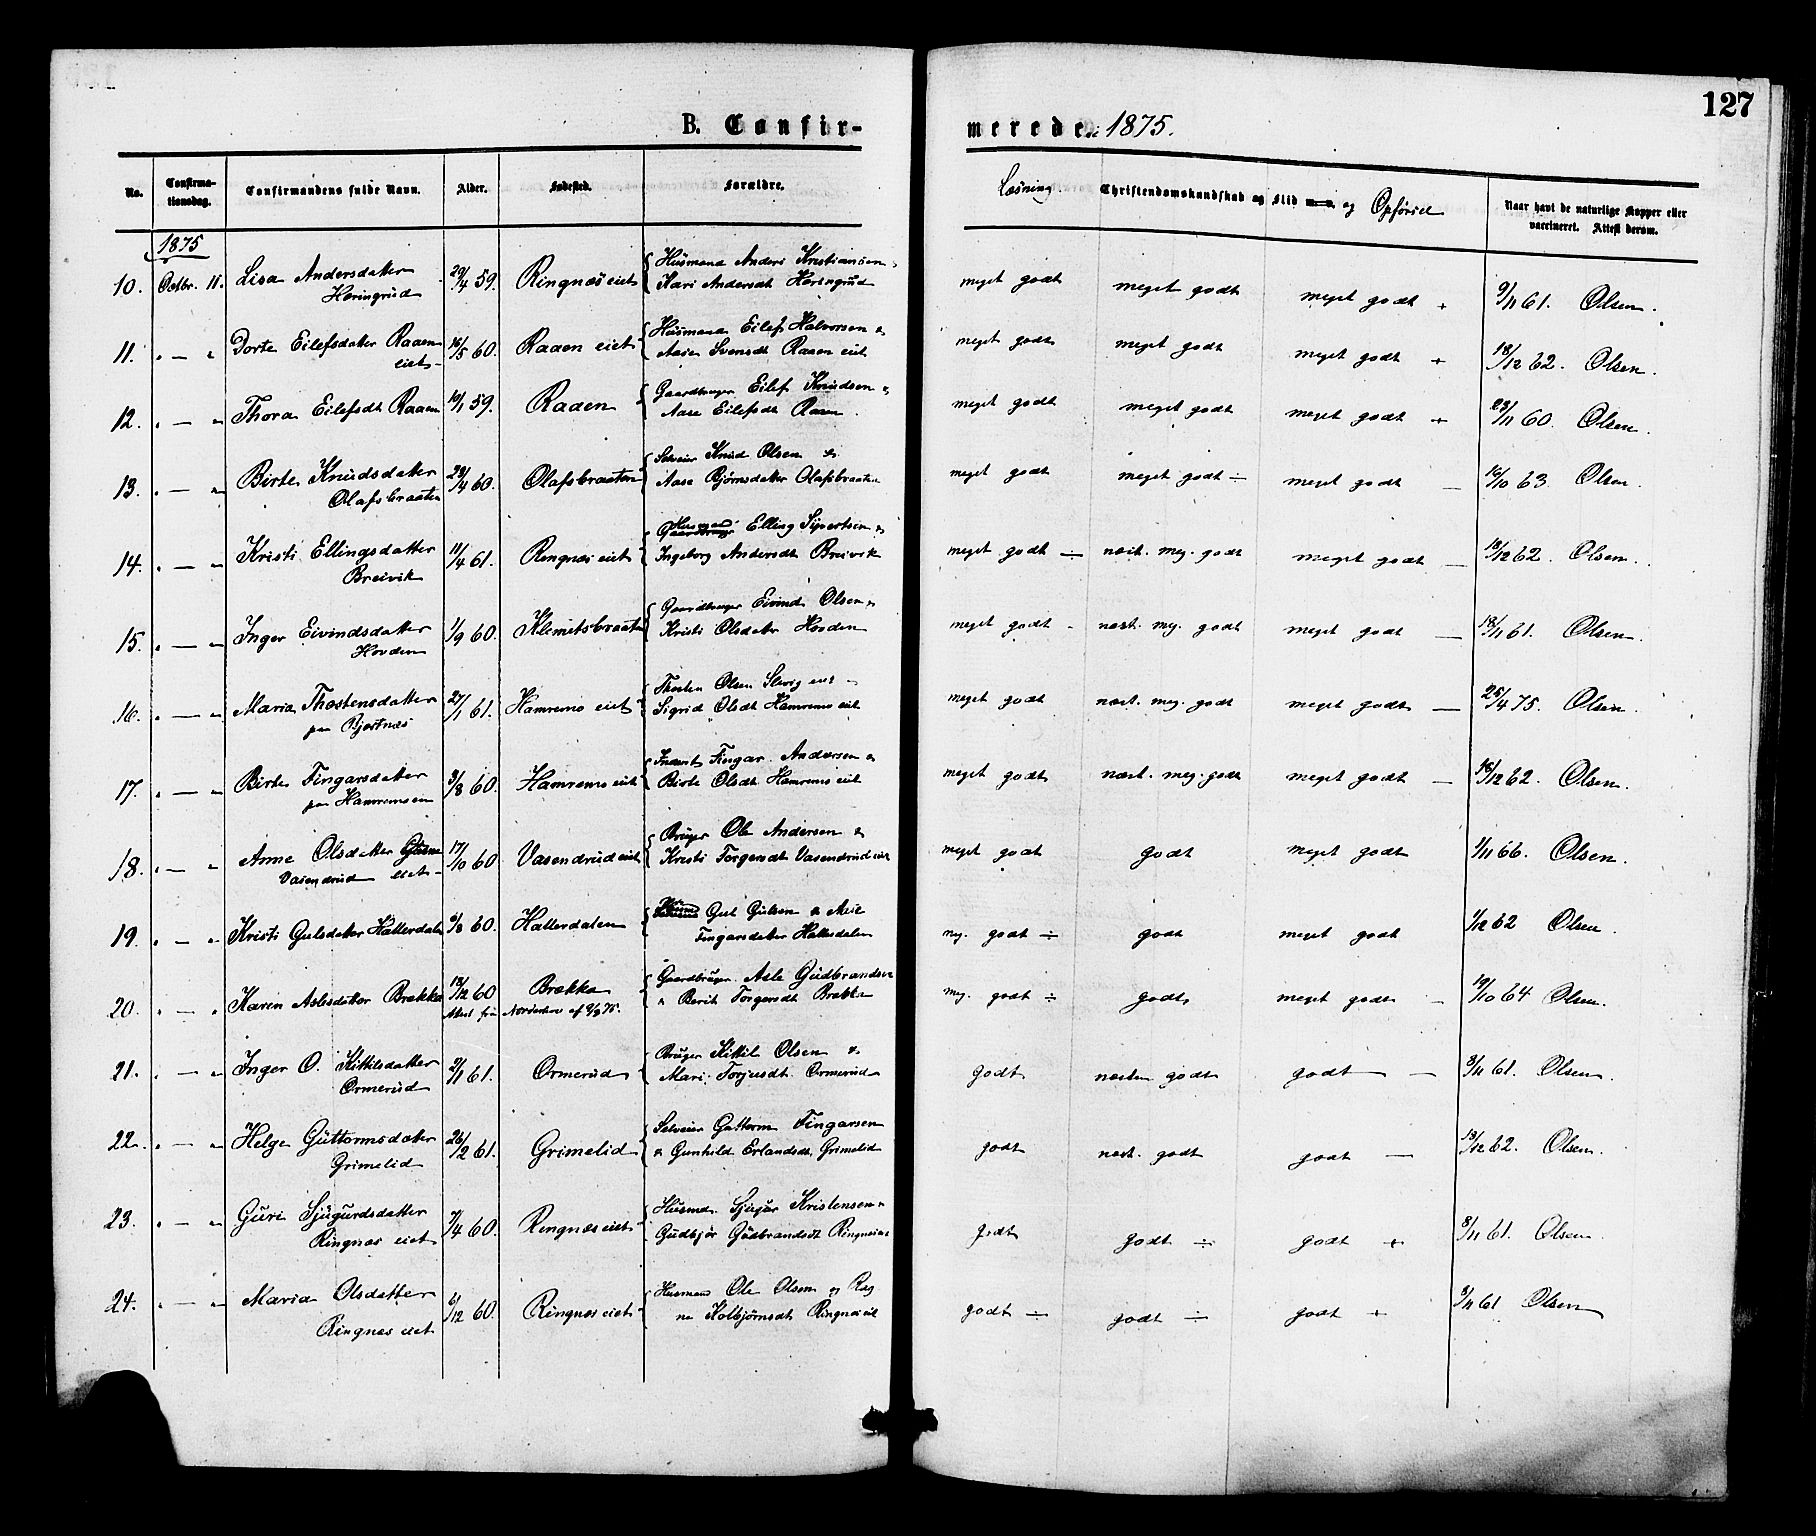 127
B. Confir-
merede. 1875.
No.
Confirma-
tionsdag.
Confirmandens fulde Navn.
Alder.
Fødested.
Forældre.
Læsning.
Christendomskundskab og Flid m. v. og Opførsel
Naar havt de naturlige Kopper eller
vaccineret. Attest derom.
1875
10. Octbr. 11. Lisa Andersdatter 29/4 59. Ringnæs eiet Husmand Anders Kristiansen meget godt meget godt meget godt + 9/11 61. Olsen.
Haringrud Kari Andersdt Haringrud
11. " — " Dorte Eilefsdatter Raaen 16/5 60. Raaen eiet Husmand Eilef Halvorsen & meget godt meget godt meget godt + 18/12 62. Olsen.
eiet Aase Svensdt Raaen eiet
12. " — " Thora Eilefsdt Raaen 10/1 59. Raaen Gaardbruger Eilef Knudsen & meget godt meget godt meget godt + 23/11 60. Olsen.
Aase Eilefsdt Raaen
13. " — " Birte Knudsdatter 29/4 60. Olafsbraaten Selveier Knud Olsen & meget godt meget godt ÷ meget godt — 16/10 63 Olsen.
Olafsbraaten Aase Bjørnsdatter Olafsbraaten
14. " — " Kristi Ellingsdatter 11/4 61. Ringnæs eiet Husmand Elling Sivertsen & meget godt ÷ næst. meg. godt meget godt — 18/12 62. Olsen.
Breivik Ingeborg Andersdt Breivik
15. " — " Inger Eivindsdatter 1/9 60. Klemitsbraaten Gaardbruger Eivind Olsen & meget godt - næst. mg. godt meget godt — 18/11 61. Olsen.
Hovden Kristi Olsdatr Hovden
16. " — " Maria Thostensdatter 27/1 61. Hamremo eiet Thosten Olsen eiet meget godt næst. meg. godt meget godt — 25/4 75. Olsen.
paa Bjertnæs Sigrid Olsdt Hamremo eiet
17. " — " Birte Fingarsdatter 3/8 60. Hamremo eiet Inderst Fingar Andersen & meget godt næst. meg. godt meget godt — 18/12 62. Olsen.
paa Hamremoen Birte Olsdt Hamremo eiet
18. " — " Anne Olsdatter 17/10 60. Vasendrud eiet Bruger Ole Andersen & meget godt godt meget godt 1/11 66. Olsen.
Vasendrud eiet Kristi Torgersdt Vasendrud eiet
19. " — " Kristi Gulsdatter Hallerdalen 9/8 60. Hallerdalen Gul Gulsen & Aase mg. godt ÷ godt meget godt 1/12 62 Olsen.
Fingarsdatter Hallerdalen
20. " — " Karen Aslesdatter Brækka 18/12 60 Brækka Gaardbruger Asle Gudbrandsen meg. godt ÷ godt meget godt — 19/10 64 Olsen.
Attest fra Norderhov af 9/9 75. & Berit Torgersdt Brækka
21. " — " Inger O. Kittilsdatter 2/1 61. Ormerud Bruger Kittil Olsen & godt næsten godt godt — 3/11 61. Olsen.
Ormerud Mari Torjusdt Ormerud
22. " — " Helge Guttormsdatter 26/2 61. Grimelid Selveier Guttorm Fingarsen godt næst. godt godt — 13/12 62. Olsen.
Grimelid & Gunhild Erlandsdt Grimelid
23. " — " Guri Sjugurdsdatter 7/4 60. Ringnæs eiet Husmd. Sjugur Kristensen & godt godt ÷ godt + 8/11 61. Olsen.
Ringnæs eiet Gudbjør Gudbrandsdt Ringnæs eiet
24. " — " Maria Olsdatter 6/12 60. Ringnæs eiet Husmand Ole Olsen og Rag godt ÷ godt ÷ godt + 8/11 61 Olsen
Ringnæs eiet ne Kolbjørnsdt Ringnæs eiet